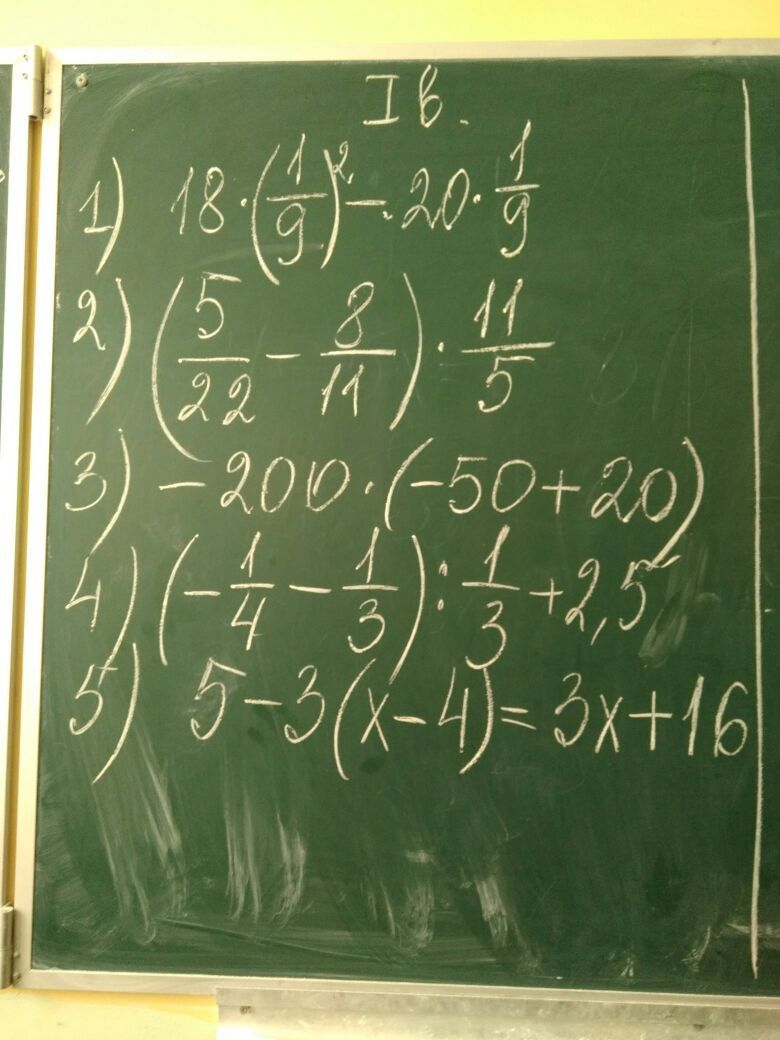 I в.
1) 18·(1/9)² - 20·1/9
2) (5/22 - 8/11)·11/5
3) -200·(-50+20)
4) (-1/4 - 1/3):1/3+2,5
5) 5-3(x-4)=3x+16